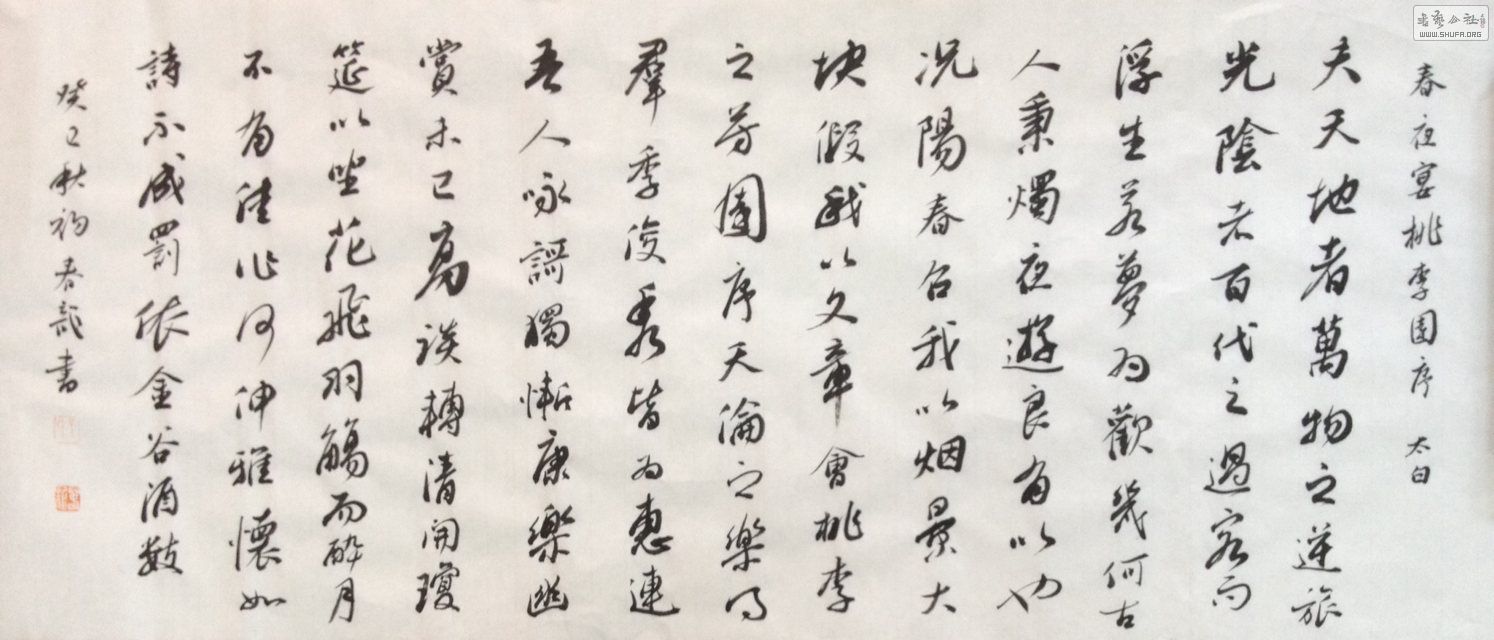 書藝公社
WWW.SHUFA.ORG
春夜宴桃李園序 太白
夫天地者萬物之逆旅
光陰者百代之過客而
浮生若夢為歡幾何古
人秉燭夜遊良有以也
況陽春召我以烟景大
塊假我以文章會桃李
之芳園序天倫之樂事
羣季俊秀皆為惠連
吾人咏謌獨慚康樂幽
賞未已高談轉清開瓊
筵以坐花飛羽觴而醉月
不有佳作何伸雅懷如
詩不成罰依金谷酒數
癸巳秋初春龍書